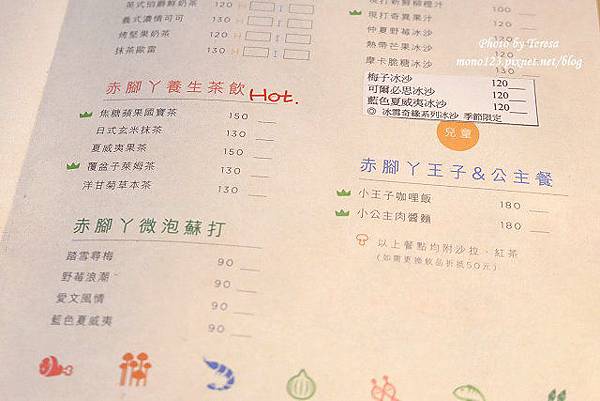 英式伯爵鮮奶茶 120 H I
義式濃情可可 130 H I
烤堅果奶茶 120 H I
抹茶歐蕾 130 H I
赤腳丫養生茶飲 Hot.
焦糖蘋果國寶茶 150
日式玄米抹茶 130
夏威夷果茶 150
覆盆子萊姆茶 130
洋甘菊草本茶 130
赤腳丫微泡蘇打
踏雪尋梅 90
野莓浪潮 90
愛文風情 90
藍色夏威夷 90
現打新鮮柳橙汁
現打奇異果汁 100
仲夏野莓冰沙
熱帶芒果冰沙
摩卡脆糖冰沙
Photo by Teresa
mono123.pixnet.net/blog
梅子冰沙 120
可爾必思冰沙 120
藍色夏威夷冰沙 120
◎ 冰雪奇緣系列冰沙 季節限定
兒童
赤腳丫王子&公主餐
小王子咖哩飯 180
小公主肉醬麵 180
以上餐點均附沙拉、紅茶
(如需更換飲品折抵50元)